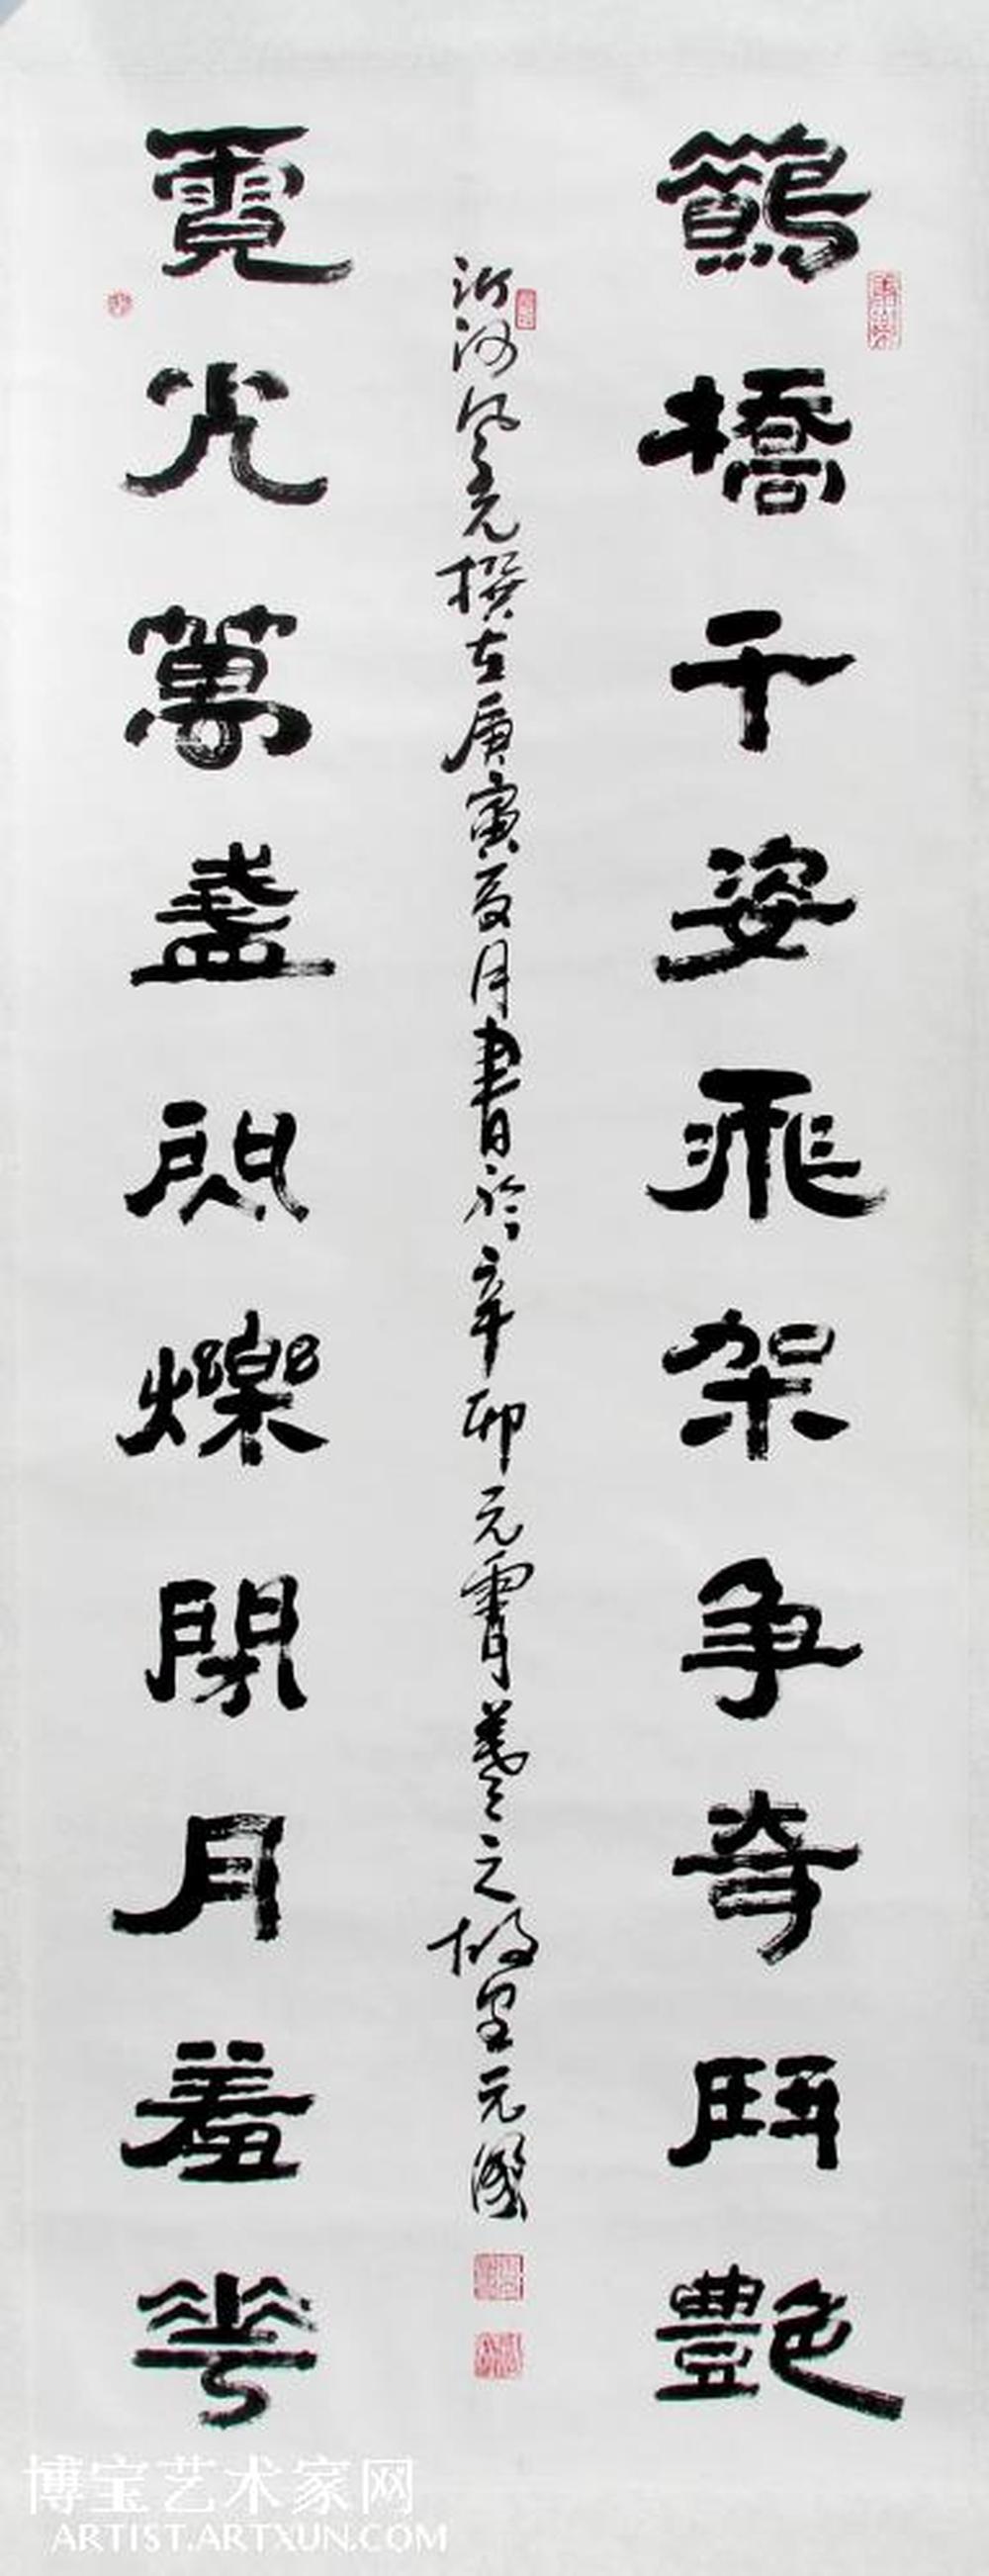 鷁橋千姿飛架爭奇鬥艷
沂河風光撰在庚寅夏月書於辛卯元宵羲之故里元國
霓光萬盞閃爍閉月羞華
博宝艺术家网
ARTIST.ARTXUN.COM